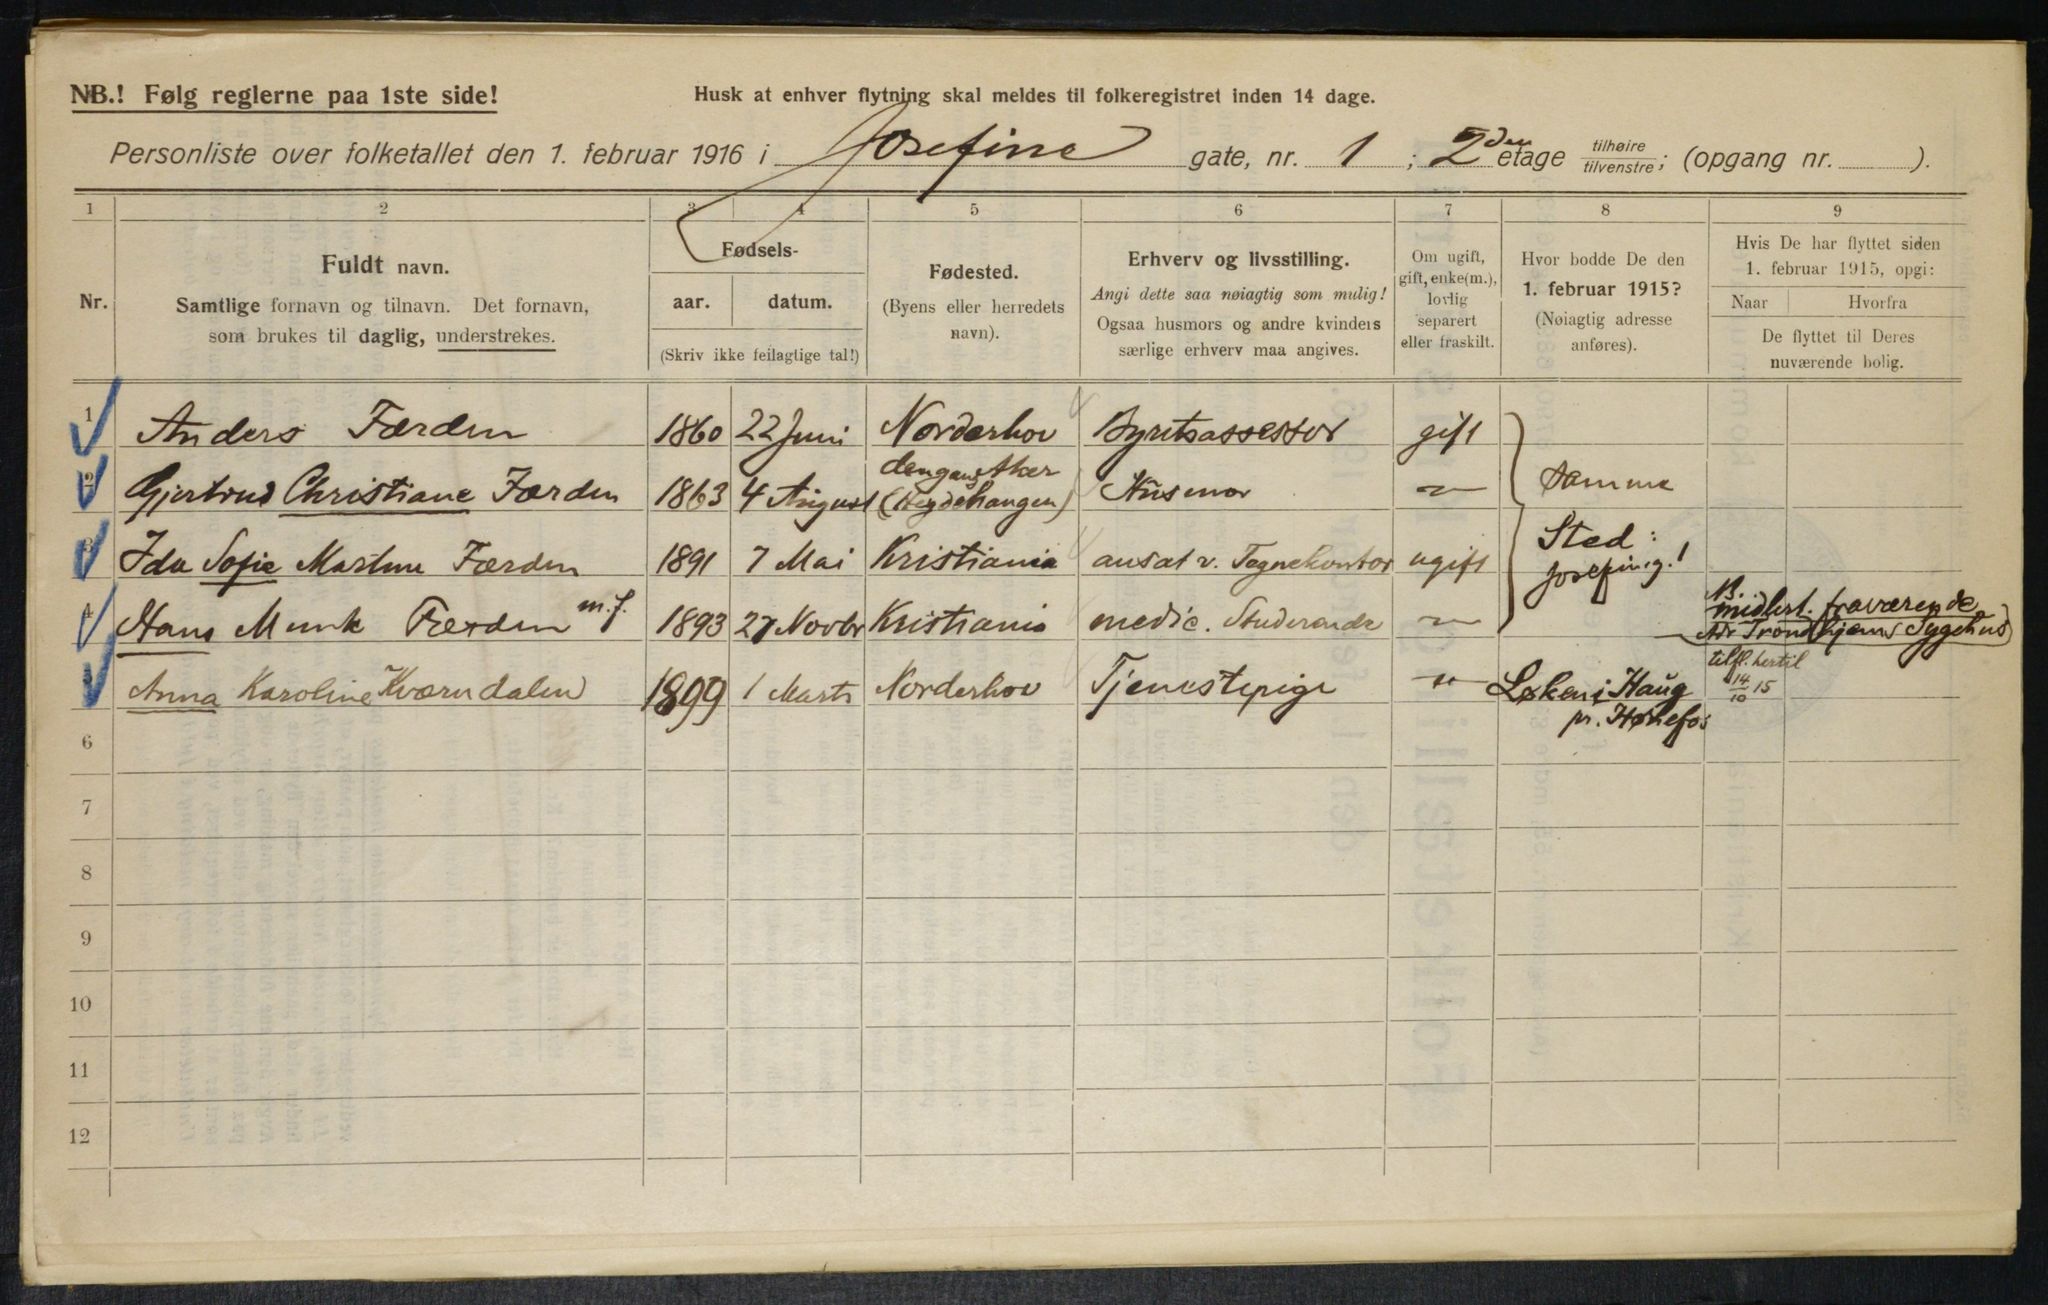 NB.! Følg reglerne paa 1ste side!
Husk at enhver flytning skal meldes til folkeregistret inden 14 dage.
Personliste over folketallet den 1. februar 1916 i Josefine gate, nr. 1 ; 2den etage tilhøire tilvenstre; (opgang nr. ).
1 2 3 4 5 6 7 8 9
Nr.
Fuldt navn.
Samtlige fornavn og tilnavn. Det fornavn,
som brukes til daglig, understrekes.
Fødsels-
aar. datum.
(Skriv ikke feilagtige tal!)
Fødested.
(Byens eller herredets
navn).
Erhverv og livsstilling.
Angi dette saa nøiagtig som mulig!
Ogsaa husmors og andre kvinders
særlige erhverv maa angives.
Om ugift,
gift, enke(m.),
lovlig
separert
eller fraskilt.
Hvor bodde De den
1. februar 1915?
(Nøiagtig adresse
anføres).
Hvis De har flyttet siden
1. februar 1915, opgi:
Naar Hvorfra
De flyttet til Deres
nuværende bolig.
1 Anders Færden 1860 22 Juni Norderhov Byretsassessor gift
2 Gjertrud Christiane Færden 1863 4 August dengang Aker (Hegdehaugen) Husmor 〃 Samme
3 Ida Sofie Martine Færden 1891 7 Mai Kristiania ansat v. Tegnekontor ugift Sted:
Josefineg. 1
4 Hans Munk Færden m.f. 1893 27 Novbr Kristiania medic. Studerende 〃 NB. midlert. fraværende
Adr Trondhjems Sygehus
5 Anna Karoline Kværndalen 1899 1 Marts Norderhov Tjenestepige 〃 Løken i Haug
pr. Hønefos
tilfl. hertil
14/10 15
6
7
8
9
10
11
12